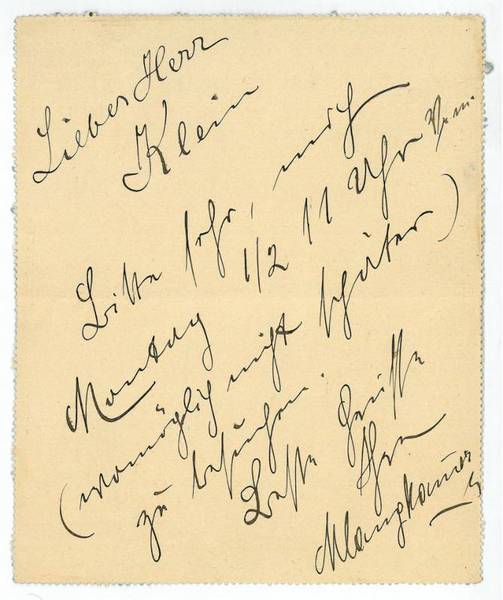 Lieber Herr
Klein
Bitte sehr, mich
Montag 1/2 11 Uhr Vm.
(womöglich nicht später)
zu besuchen.
Beste Grüsse
Ihr